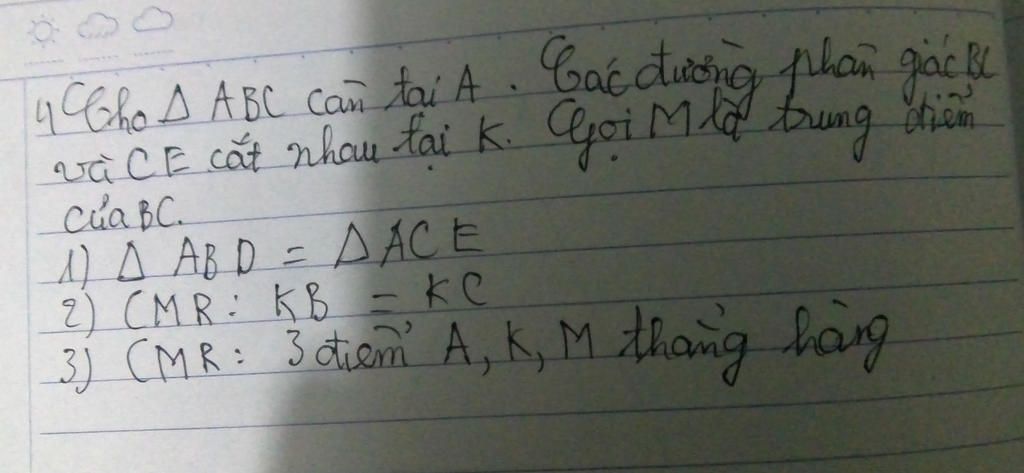 4, Cho Δ ABC cân tại A. Các đường phân giác BC
và CE cắt nhau tại K. Gọi M là trung điểm
của BC.
1) Δ ABD = Δ ACE
2) CMR: KB = KC
3) CMR: 3 điểm A, K, M thẳng hàng